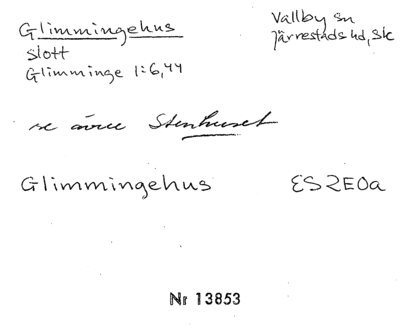 Glimmingehus
slott
Glimminge 1:6,44
Vallby sn
Järrestads hd, Sk
se även Stenhuset
Glimmingehus
ES2E0a
Nr 13853